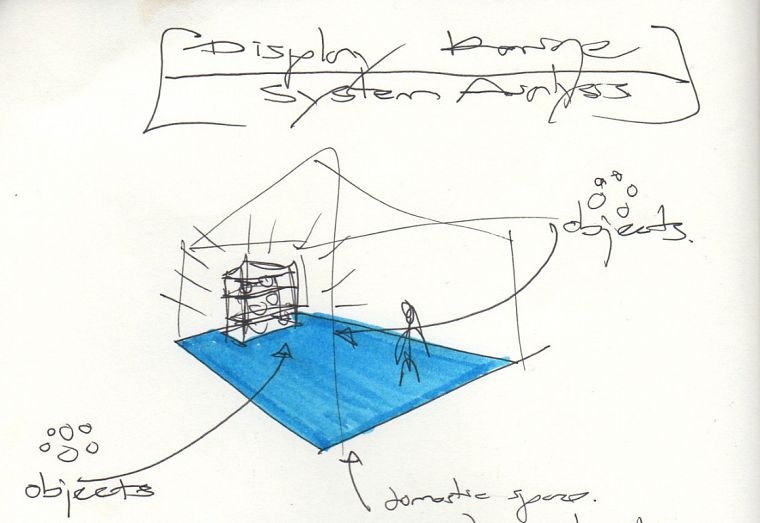 Display Range
System Analysis
objects.
objects
domestic space.